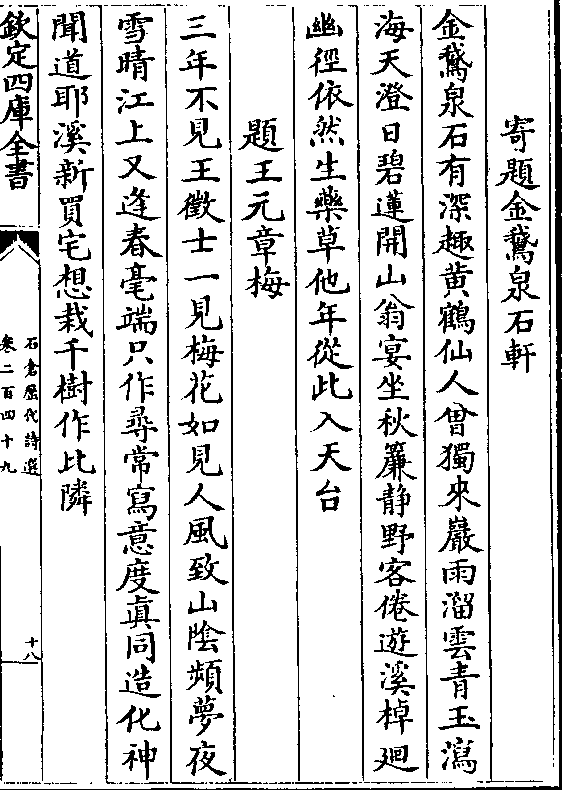 寄題金鵞泉石軒
金鵞泉石有深趣黄鶴仙人曾獨來巖雨溜雲青玉瀉
海天澄日碧蓮開山翁宴坐秋簾静野客倦遊溪棹廻
幽徑依然生藥草他年從此入天台
題王元章梅
三年不見王徵士一見梅花如見人風致山隂頻夢夜
雪晴江上又逢春毫端只作尋常寫意度眞同造化神
聞道耶溪新買宅想栽千樹作比隣
欽定四庫全書
石倉歷代詩選
卷二百四十九
十八